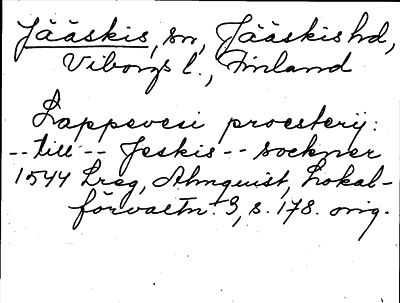 Jääskis, sn, Jääskis hd,
Viborgs l., Finland
Lappevesi prosterij:
-- till -- Jeskis -- sockner
1544 Lreg, Almquist, Lokal-
förvaltn. 3, s. 178. orig.